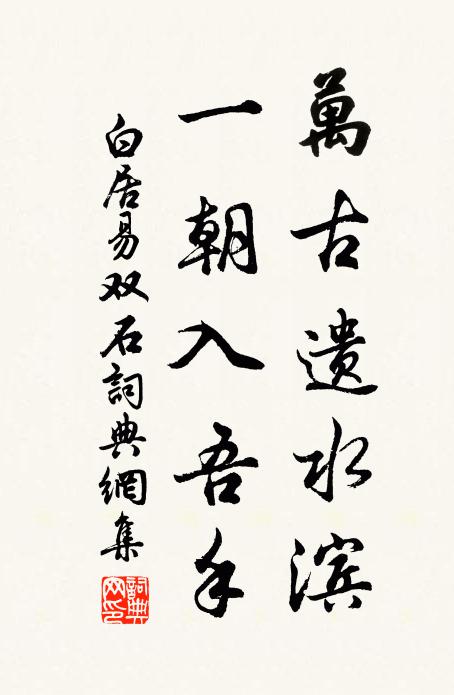 萬古遗水滨
一朝入吾手
白居易双石詞典網集
詞典網印